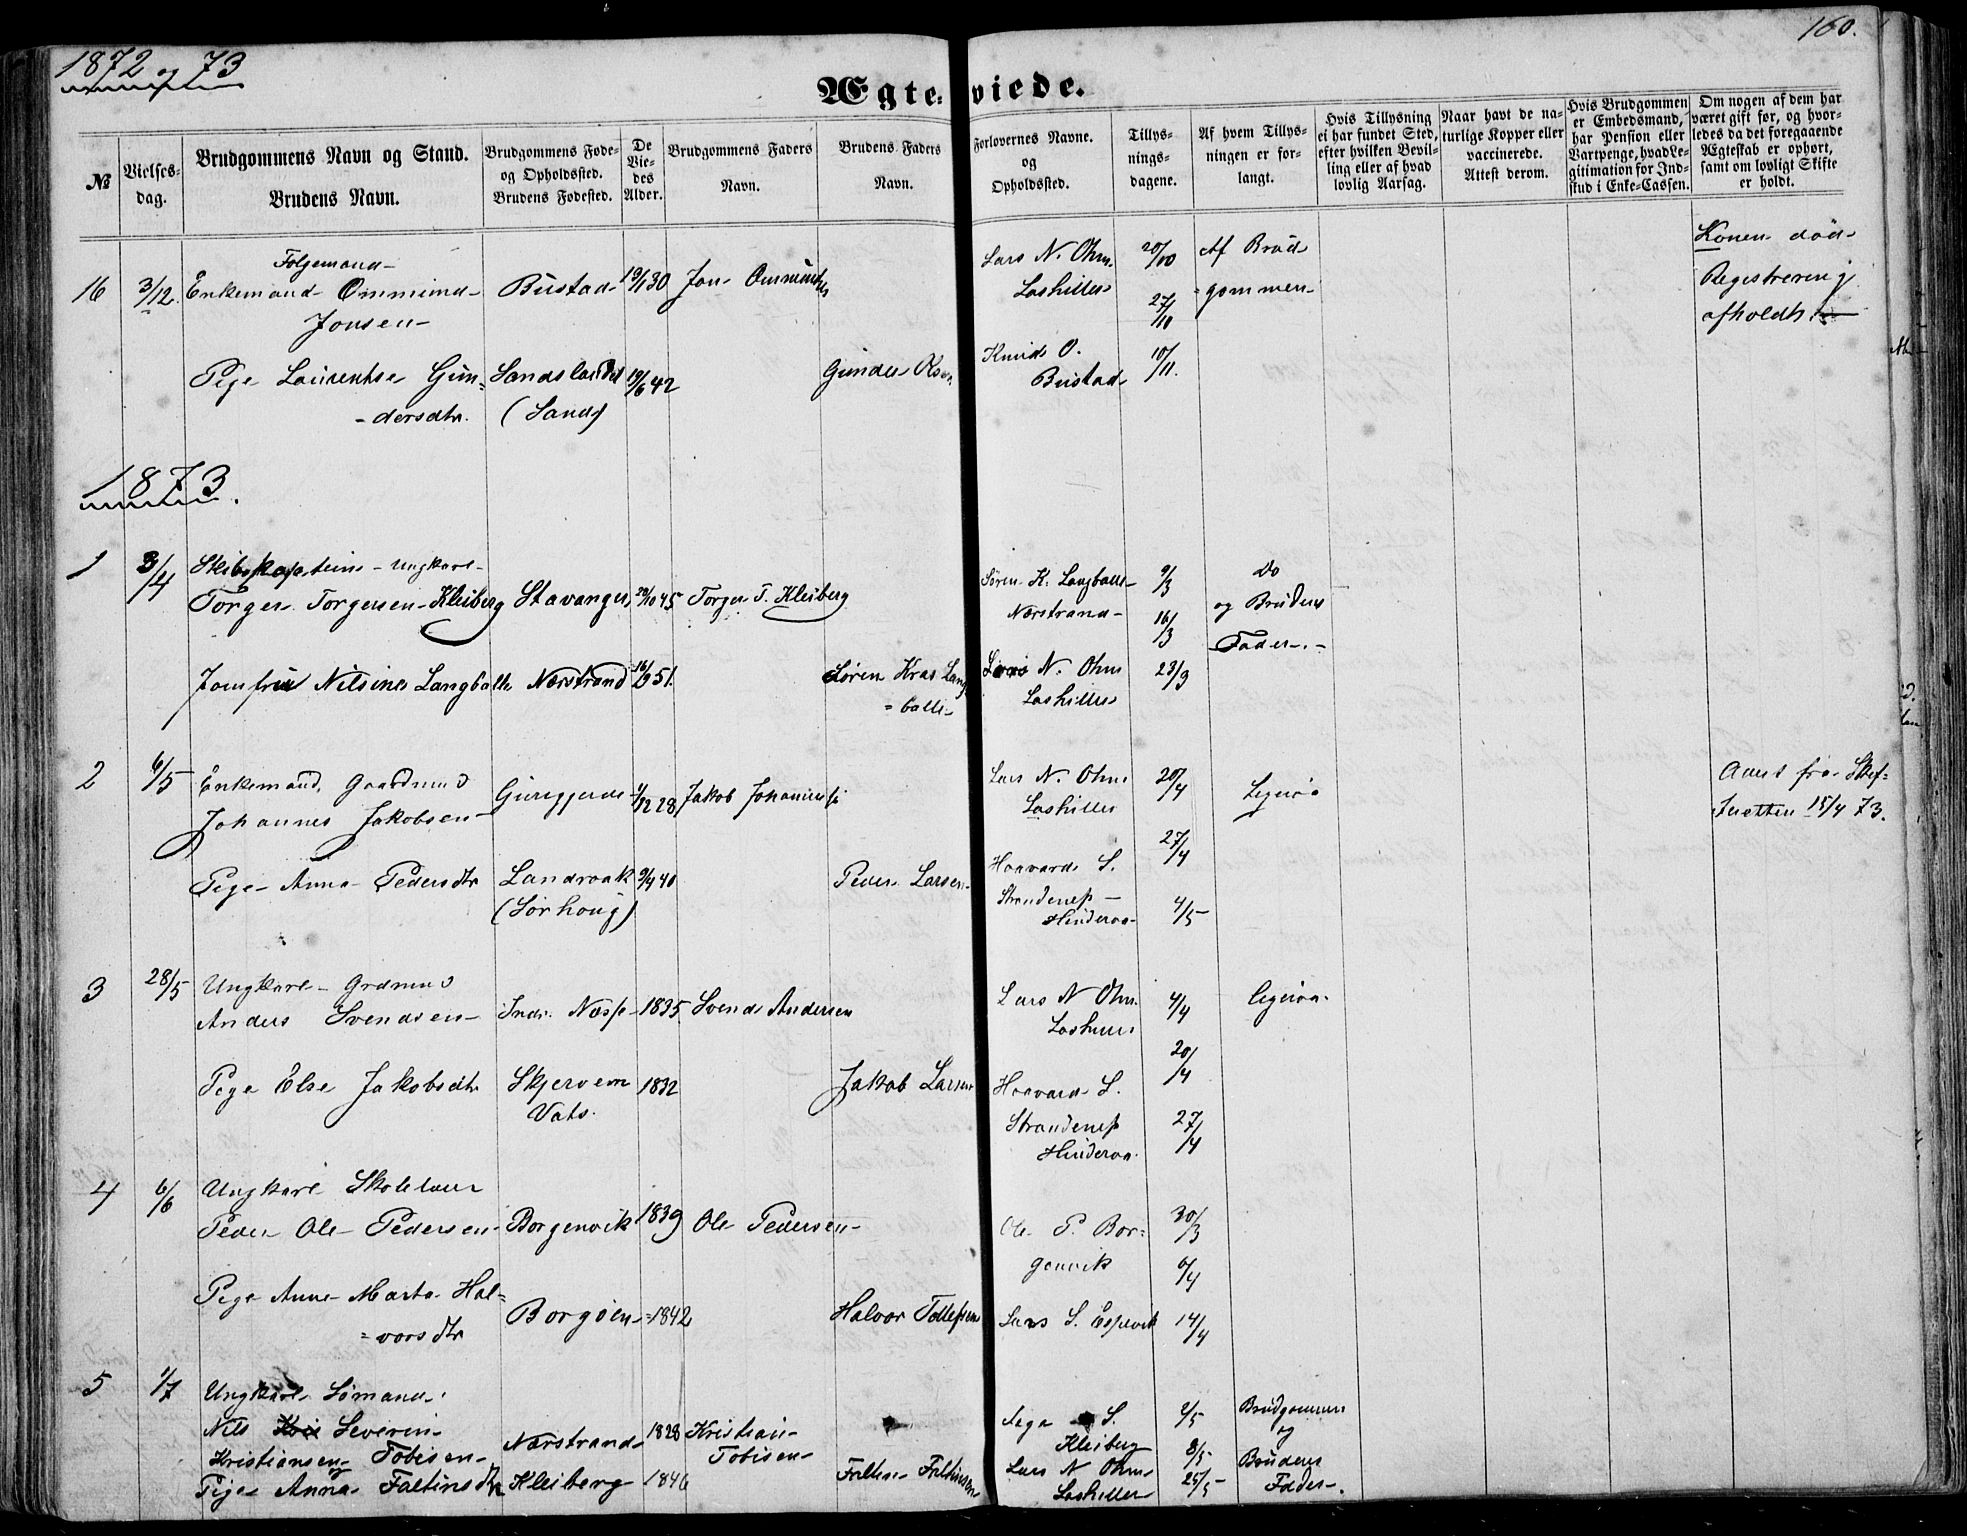 1872 og 73
160.
Ægteviede.
№
Vielses-
dag.
Brudgommens Navn og Stand.
Brudens Navn.
Brudgommens Føde-
og Opholdssted.
Brudens Fødested.
De
Vie-
des
Alder.
Brudgommens Faders
Navn.
Brudens Faders
Navn.
Forlovernes Navne.
og
Opholdssted.
Tillys-
nings-
dagene.
Af hvem Tillys-
ningen er for-
langt.
Hvis Tillysning
ei har fundet Sted,
efter hvilken Bevil-
ling eller af hvad
lovlig Aarsag.
Naar havt de na-
turlige Kopper eller
vaccinerede.
Attest derom.
Hvis Brudgommen
er Embedsmand,
har Pension eller
Vartpenge, hvad Le-
gitimation for Ind-
skud i Enke-Cassen.
Om nogen af dem har
været gift før, og hvor-
ledes da det foregaaende
Ægteskab er ophørt,
samt om lovligt Skifte
er holdt.
16 3/12 Følgemand
Enkemand Ommund
Jonsen
Bustad 19/1 30 Jon Ommundsen
Lars N. Ohm
Loshiller
20/10
27/10
Af Brud-
gommen
Konen død
Registrering
afholdt
Pige Laurentse Gun-
dersdtr.
Sandslandet
(Sand)
19/6 42
Gunder
Knud O.
Bustad
10/11.
1873.
1 3/4 Skibskaptein ungkarl
Torger Torgersen Kleiberg Stavanger /10 45 Torger T. Kleiberg
Søren K. Langballe
Nærstrand
9/3
16/3
Do
og Brudens
Fader
Jomfru Nilsine Langballe Nærstrand 16/9 51.
Søren Kras Lang-
balle
Lars N. Ohm
Loshiller
23/3
2 6/5 Enkemand, Gaardmand
Johannes Jakobsen
/12 28 Jakob Johannes
Lars N. Ohm
Loshiller
20/4
27/4
Ligesaa
15/4 73.
Pige Anna Pedersdtr
Landraak
(Sørhoug)
9/4 40
Peder Larsen
Haavard S.
Strandenes
Hinderaa
4/5
3 28/5 Ungkarl Grdmnd
Anders Svendsen
Indr. Næss 1835. Svend Andersen
Lars N Ohm
4/4
20/4
Ligesaa.
Pige Else Jakobsdtr
Skjerveim
Vats.
1832
Jakob Larsen
Haavard S.
Strandenes
Hinderaa.
27/4
4 6/6 Ungkarl Skolelærer
Peder Ole Pedersen Borgenvik 1839 Ole Pedersen
Ole P. Bor-
genvik
30/3
6/4
Pige Anne Marta Hal-
vorsdtr
Borgøen 1842
Halvor Tollefsen
Lars S. Espevik 14/4
5 1/7 Ungkarl Sømand
Nils Severin
Kristiansen Tobisen
Nærstrand 1828 Kristian
Tobisen
S.
Kleiberg
2/5
8/5
Brudgommen
og
Pige Anna Faltinsdtr Kleiberg 1846
Faltin Faltinsen
Lars N Ohm
Loshiller
25/5
Brudens
Fader.